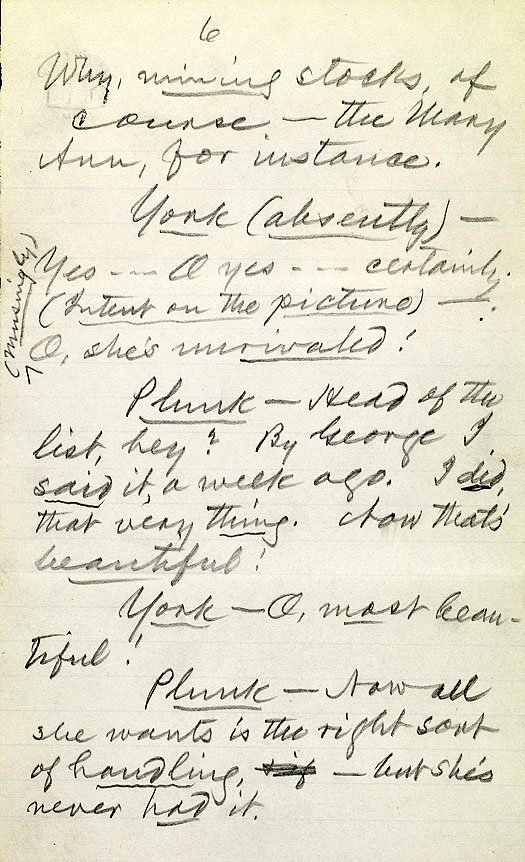 6
Why, mining stocks, of
course — the Mary
Ann, for instance.
York (absently) —
Yes --- O yes --- certainly.
(Intent on the picture) —
(Musingly)
O, she's unrivaled!
Plunk — Head of the
list, hey? By George I
said it, a week ago. I did,
that very thing. Now that's
beautiful!
York — O, most beau-
tiful!
Plunk — Now all
she wants is the right sort
of handling, — but she's
never had it.